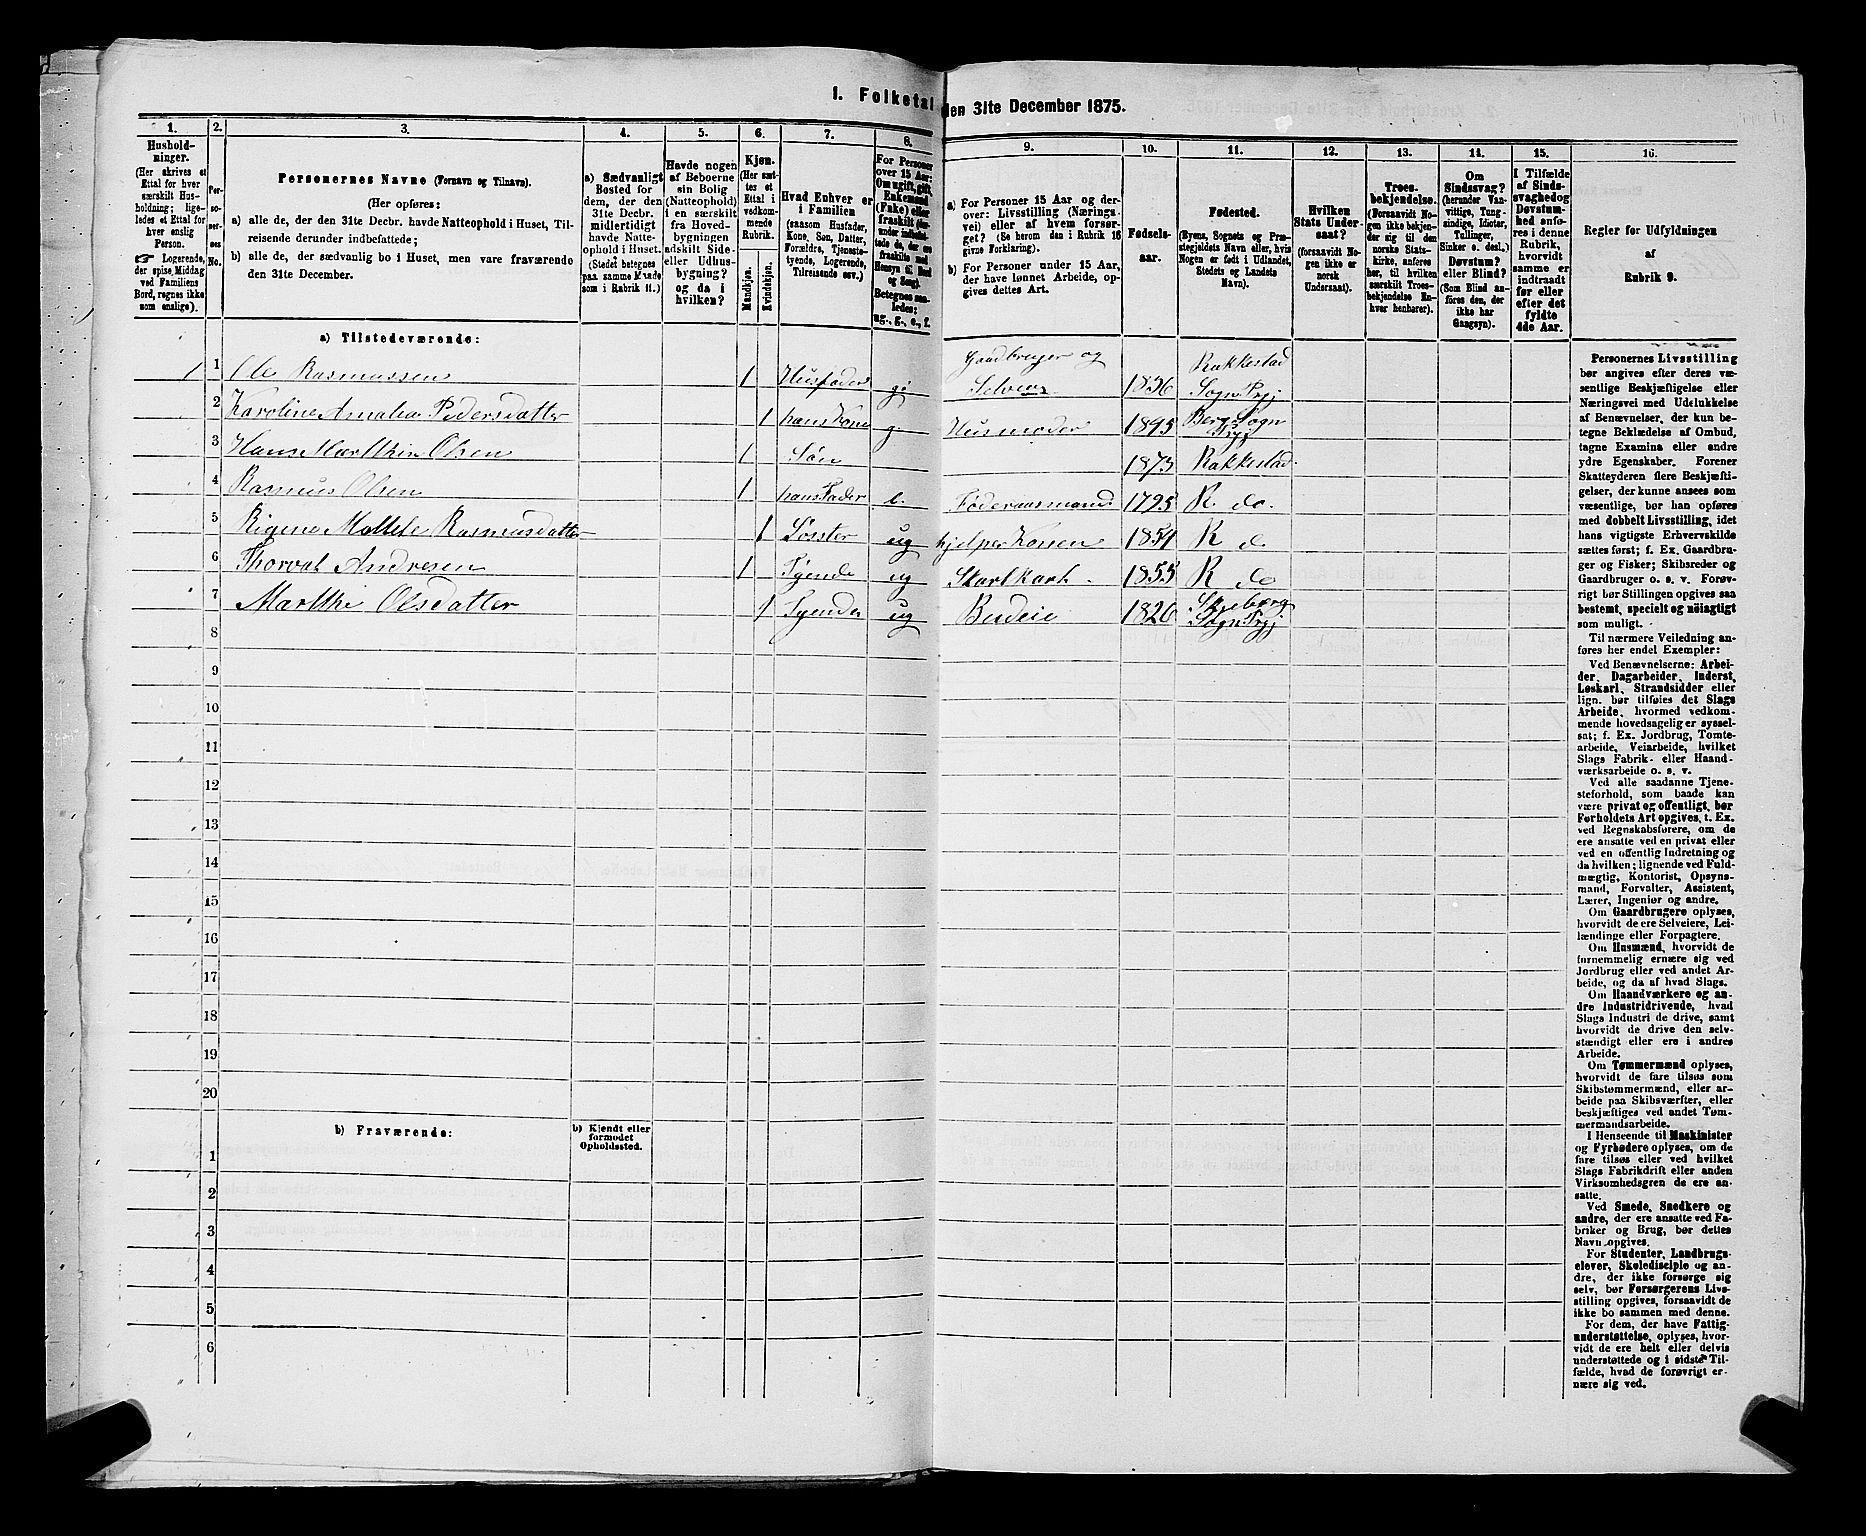 I. Folketal den 31te December 1875.
1. 2. 3. 4. 5. 6. 7. 8. 9. 10. 11. 12. 13. 14. 15. 16.
Hushold-
ninger.
(Her skrives et
Ettal for hver
særskilt Hus-
holdning; lige-
ledes et Ettal for
hver enslig
Person.
☞ Logerende,
der spise Middag
ved Familiens
Bord, regnes ikke
som enslige).
Per-
so-
ner-
nes
No.
Personernes Navne (Fornavn og Tilnavn).
(Her opføres:
a) alle de, der den 31te Decbr. havde Natteophold i Huset, Til-
reisende derunder indbefattede;
b) alle de, der sædvanlig bo i Huset, men vare fraværende
den 31te December.
a) Sædvanligt
Bosted for
dem, der den
31te Decbr.
midlertidigt
havde Natte-
ophold i Huset.
(Stedet betegnes
paa samme Maade
som i Rubrik 11.)
Havde nogen
af Beboerne
sin Bolig
(Natteophold)
i en særskilt
fra Hoved-
bygningen
adskilt Side-
eller Udhus-
bygning?
og da i
hvilken?
Kjøn.
(Her sæt-
tes et
Ettal i
vedkom-
mende
Rubrik.
Mandkjøn.
Kvindekjøn.
Hvad Enhver er
i Familien
(saasom Husfader,
Kone, Søn, Datter,
Forældre, Tjeneste-
tyende, Logerende,
Tilreisende osv.)
For Personer
over 15 Aar:
Om ugift, gift,
Enkemand
(Enke) eller
fraskilt
Betegnes saa-
ledes:
ug., g., e., f.
a) For Personer 15 Aar og der-
over: Livsstilling (Nærings-
vei) eller af hvem forsør-
get? (Se herom den i Rubrik 16
givne Forklaring).
b) For Personer under 15 Aar,
der have lønnet Arbeide, op-
gives dettes Art.
Fødsels-
aar.
Fødested.
(Byens, Sognets og Præ-
stegjeldets Navn eller, hvis
Nogen er født i Udlandet,
Stedets og Landets
Navn).
Hvilken
Stats Under-
saat?
(forsaavidt No-
gen ikke er
norsk
Undersaat).
Troes-
bekjendelse.
(Forsaavidt No-
gen ikke bekjen-
der sig til den
norske Stats-
kirke, anføres
her, til hvilken
særskilt Troes-
bekjendelse En-
hver henhører).
Om
Sindssvag?
(herunder Van-
vittige, Tung-
sindige, Idioter,
Tullinger,
Sinker o. desl.)
Døvstum?
eller Blind?
(Som Blind an-
føres den, der
ikke har
Gangsyn).
I Tilfælde
af Sinds-
svaghed og
Døvstum-
hed anfø-
res i denne
Rubrik,
hvorvidt
samme er
indtraadt
før eller
efter det
fyldte
4de Aar.
Regler for Udfyldningen
af
Rubrik 9.
a) Tilstedeværende:
1 1 Ole Rasmussen 1 Husfader g. Gaardbruger og Selveier 1836 Rakkestad Sogn Prgj
2 Karoline Amalia Pedersdatter 1 hans Kone g. Husmoder 1895 Berg Sogn Prgj
3 Hans Marthin Olsen 1 Søn 1873 Rakkestad
4 Rasmus Olsen 1 hans Fader e. Føderaadsmand 1795 R do.
5 Rigine Mathte Rasmusdatter 1 Søster ug hjelper Konen 1851 R d
6 Thorval Andresen 1 Tyende ug 1855 R do
7 Marthe Olsdatter 1 Tyende ug Budeie 1820 Skjeberg Sogn Prgj
8
9
10
11
12
13
14
15
16
17
18
19
20
b) Fraværende:
b) Kjendt eller
formodet
Opholdssted.
1
2
3
4
5
6
Personernes Livsstilling
bør angives efter deres væ-
sentlige Beskjæftigelse eller
Næringsvei med Udelukkelse
af Benævnelser, der kun be-
tegne Beklædelse af Ombud,
tagne Examina eller andre
ydre Egenskaber. Forener
Skatteyderen flere Beskjæfti-
gelser, der kunne ansees som
væsentlige, bør han opføres
med dobbelt Livsstilling, idet
hans vigtigste Erhvervskilde
sættes først; f. Ex. Gaardbru-
ger og Fisker; Skibsreder og
Gaardbruger o. s. v. Forøv-
rigt bør Stillingen opgives saa
bestemt, specielt og nøiagtigt
som muligt.
Til nærmere Veiledning an-
føres her endel Exempler:
Ved Benævnelserne: Arbei-
der, Dagarbeider, Inderst,
Løskarl, Strandsidder eller
lign. bør tilføies det Slags
Arbeide, hvormed vedkom-
mende hovedsagelig er syssel-
sat; f. Ex. Jordbrug, Tomte-
arbeide, Veiarbeide, hvilket
Slags Fabrik- eller Haand-
værksarbeide o. s. v.
Ved alle saadanne Tjene-
steforhold, som baade kan
være privat og offentligt, bør
Forholdets Art opgives, t. Ex.
ved Regnskabsførere, om de
ere ansatte ved en privat eller
ved en offentlig Indretning og
da hvilken; lignende ved Fuld-
mægtig, Kontorist, Opsyns-
mand, Forvalter, Assistent,
Lærer, Ingeniør og andre.
Om Gaardbrugere oplyses,
hvorvidt de ere Selveiere, Lei-
lændinge eller Forpagtere.
Om Husmænd, hvorvidt de
fornemmelig ernære sig ved
Jordbrug eller ved andet Ar-
beide, og da af hvad Slags.
Om Haandværkere og an-
dre Industridrivende, hvad
Slags Industri de drive, samt
hvorvidt de drive den selv-
stændigt eller ere i andres
Arbeide.
Om Tømmermænd oplyses,
hvorvidt de fare tilsøs som
Skibstømmermænd, eller ar-
beide paa Skibsværfter, eller
beskjæftiges ved andet Tøm-
mermandsarbeide.
I Henseende til Maskinister
og Fyrbødere oplyses, om de
fare tilsøs eller ved hvilket
Slags Fabrikdrift eller anden
Virksomhedsgren de ere an-
satte.
Ved Smede, Snedkere og
andre, der ere ansatte ved Fa-
briker og Brug, bør dettes
Navn opgives.
For Studenter, Landbrugs-
elever, Skoledisciple og an-
dre, der ikke forsørge sig
selv, bør Forsørgerens Livs-
stilling opgives, forsaavidt de
ikke bo sammen med denne.
For dem, der have Fattig-
understøttelse, oplyses, hvor-
vidt de ere helt eller delvis
understøttede og i sidste Til-
fælde, hvad de forøvrigt er-
nære sig ved.